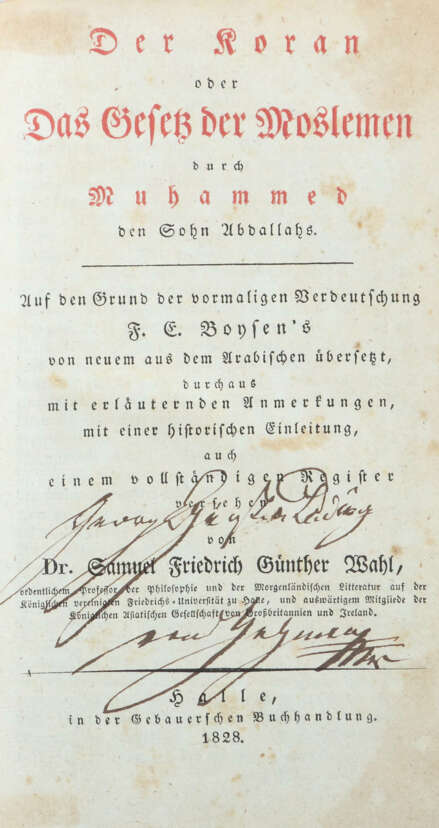 Der Koran
oder
Das Gesetz der Moslemen
durch
Muhammed
den Sohn Abdallahs.
Auf den Grund der vormaligen Verdeutschung
F. E. Boysen's
von neuem aus dem Arabischen übersetzt,
durchaus
mit erläuternden Anmerkungen,
mit einer historischen Einleitung,
auch
einem vollständigen Register
versehen
von
Dr. Samuel Friedrich Günther Wahl,
ordentlichem Professor der Philosophie und der Morgenländischen Litteratur auf der
Königlichen vereinigten Friedrichs-Universität zu Halle, und auswärtigem Mitgliede der
Königlichen Asiatischen Gesellschaft von Großbritannien und Ireland.
von
Halle,
in der Gebauerschen Buchhandlung.
1828.